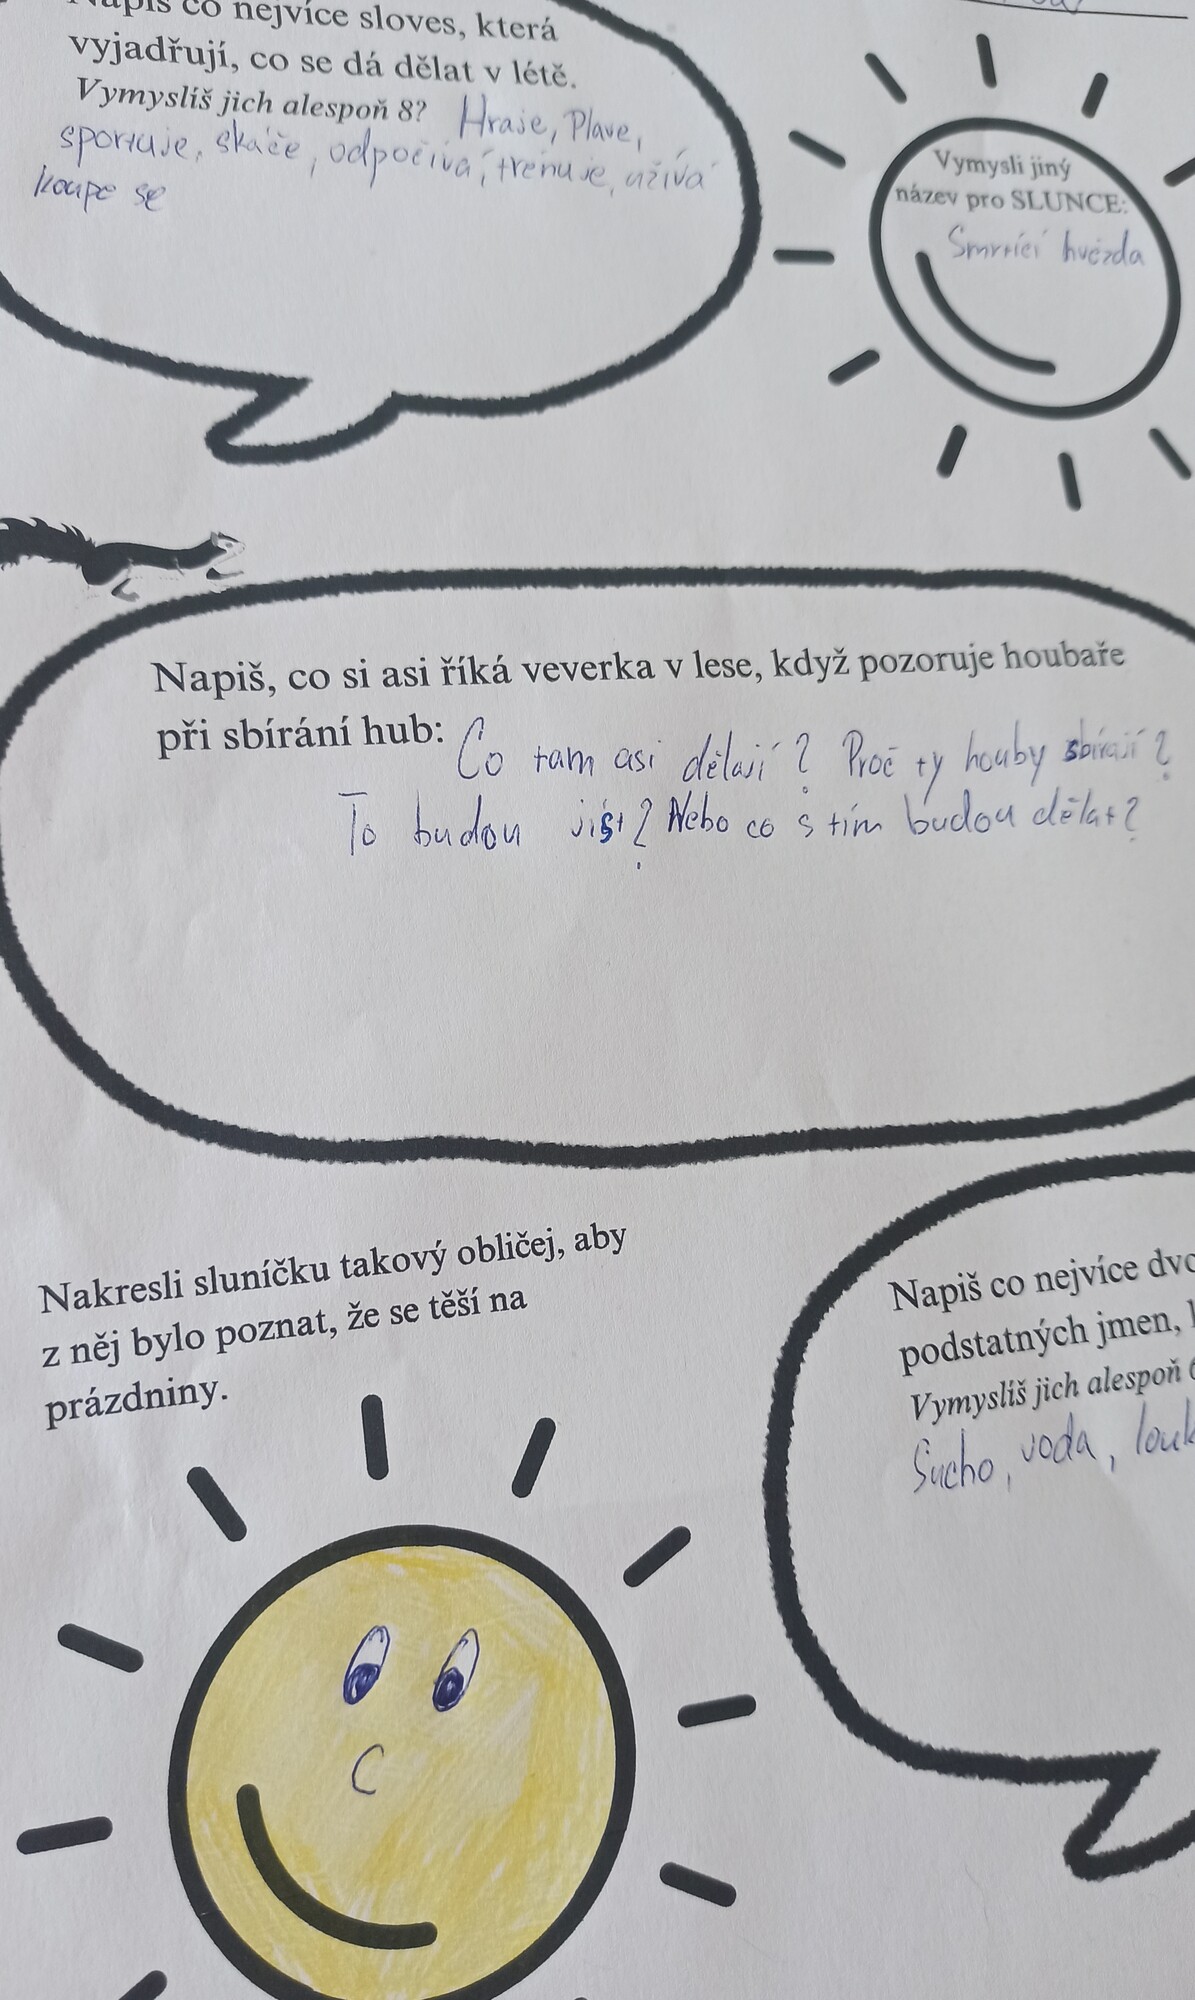 Napiš co nejvíce sloves, která
vyjadřují, co se dá dělat v létě.
Vymyslíš jich alespoň 8? Hraje, Plave,
sportuje, skáče, odpočívá, trénuje, užívá
koupe se
Vymysli jiný
název pro SLUNCE:
Smrtící hvězda
Napiš, co si asi říká veverka v lese, když pozoruje houbaře
při sbírání hub: Co tam asi dělají? Proč ty houby sbírají?
To budou jíst? Nebo co s tím budou dělat?
Nakresli sluníčku takový obličej, aby
z něj bylo poznat, že se těší na
prázdniny.
Napiš co nejvíce dvo
podstatných jmen,
Vymyslíš jich alespoň 6
Sucho, voda, louk